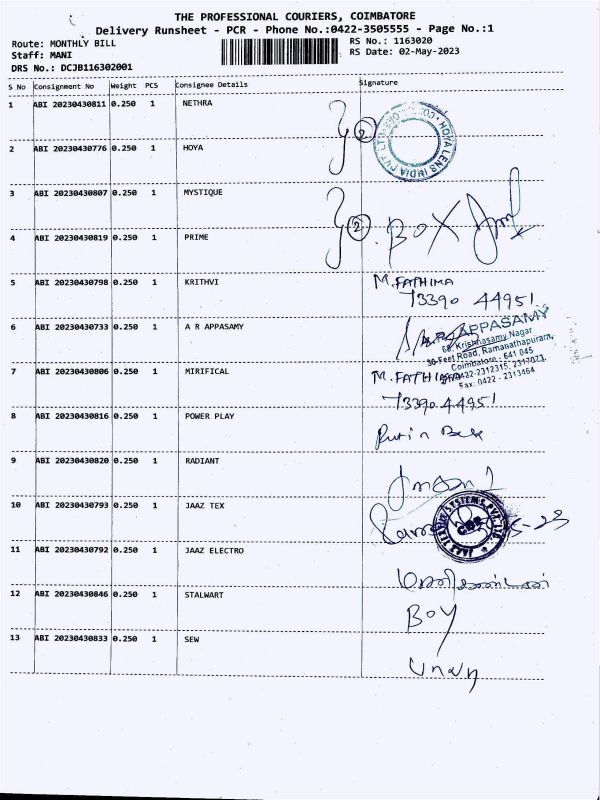 THE PROFESSIONAL COURIERS, COIMBATORE
Delivery Runsheet - PCR - Phone No.:0422-3505555 - Page No.:1
Route: MONTHLY BILL
Staff: MANI
DRS No.: DCJB116302001
RS No.: 1163020
RS Date: 02-May-2023
S No Consignment No Weight PCS Consignee Details Signature
1 ABI 20230430811 0.250 1 NETHRA
2
HOYA LENS INDIA PVT LTD
2 ABI 20230430776 0.250 1 HOYA
3 ABI 20230430807 0.250 1 MYSTIQUE
2 BOX
4 ABI 20230430819 0.250 1 PRIME
5 ABI 20230430798 0.250 1 KRITHVI M. FATHIMA
73390 44951
6 ABI 20230430733 0.250 1 A R APPASAMY APPASAMY
Krishnasamy Nagar
30-Feet Road, Ramanathapuram,
Coimbatore - 641 045
0422-2312315, 2317023
Fax: 0422 - 2313464
7 ABI 20230430806 0.250 1 MIRIFICAL M. FATHIMA
73390 44951
8 ABI 20230430816 0.250 1 POWER PLAY Put in Box
9 ABI 20230430820 0.250 1 RADIANT
10 ABI 20230430793 0.250 1 JAAZ TEX
11 ABI 20230430792 0.250 1 JAAZ ELECTRO
12 ABI 20230430846 0.250 1 STALWART BOY
13 ABI 20230430833 0.250 1 SEW